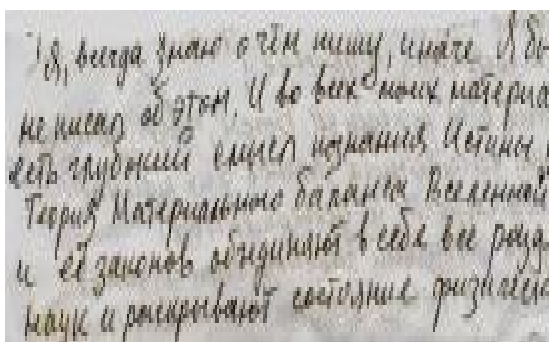 Я, всегда знаю о чём пишу, иначе Я бы
не писал об этом. И во всех моих материа
есть глубокий смысл познания Истины
Теория Материального баланса Вселенной
и её законов объединяют в себе все разд
наук и раскрывают состояние физическ